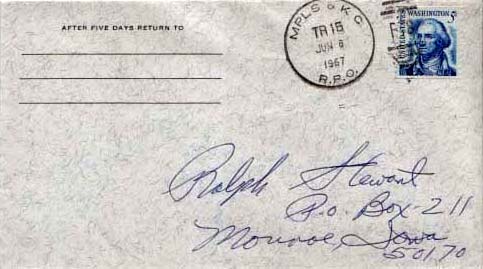 AFTER FIVE DAYS RETURN TO
MPLS & K.C.
TR 15
JUN 6
1967
R.P.O.
WASHINGTON 5¢
UNITED STATES
Ralph Stewart
P.O. Box-211
Monroe, Iowa
50170